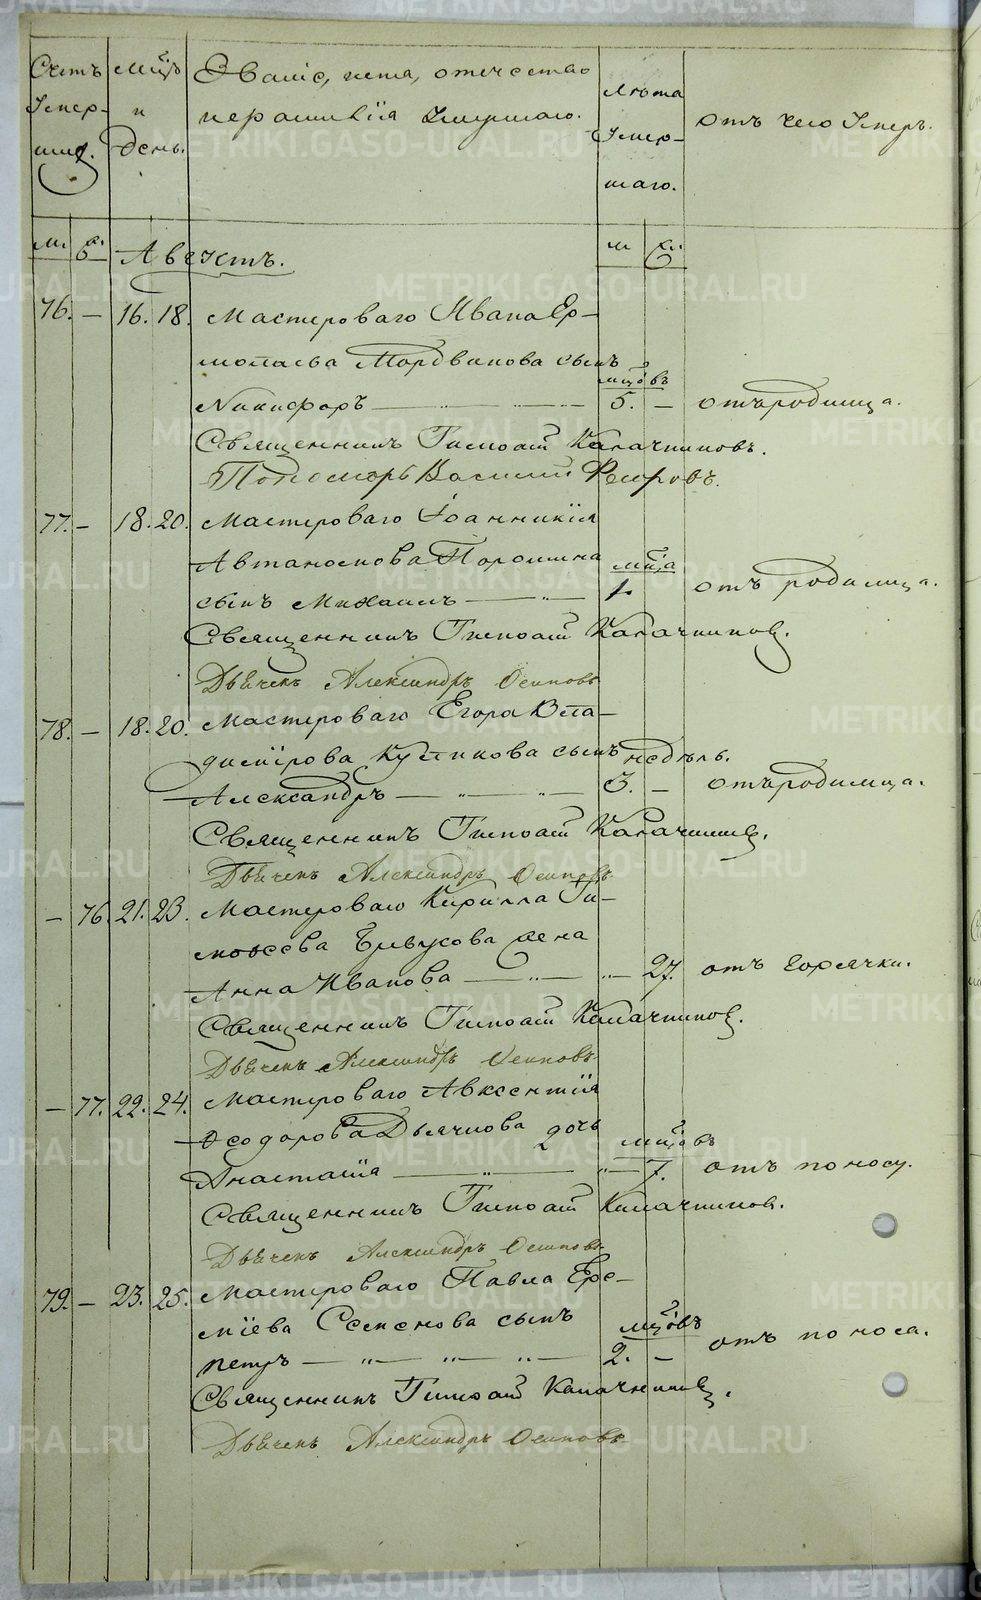 Счетъ Умер-шихъ.
Мцъ и день.
Званіе, имя, отечество и фамилія Умершаго.
Лѣта Умер-шаго.
Отъ чего Умеръ.
м. ж. Августъ. м ж.
76. — 16. 18. Мастероваго Ивана Ер-
молаева Мордвинова сынъ мцовъ
Никифоръ — 5. — отъ родимца.
Священникъ Калачниковъ.
Пономарь Василій
77. — 18. 20. Мастероваго Іоанникія
Автаномова Порошина мца
сынъ Михаилъ — 1. отъ родимца.
Священникъ Калачниковъ.
Дьячекъ Александръ Осиповъ
78. — 18. 20. Мастероваго Егора Вла-
димірова сынъ недѣль.
Александръ — 3. — отъ родимца.
Священникъ Калачниковъ.
Дьячекъ Александръ Осиповъ
— 76. 21. 23. Мастероваго Кирилла Ти-
моѳеева жена
Анна Иванова — 27. отъ горячки.
Священникъ Калачниковъ.
Дьячекъ Александръ Осиповъ
— 77. 22. 24. Мастероваго Авксентія
Ѳеодорова Дьячкова дочь мцовъ
Анастасія — 7. отъ поносу.
Священникъ Калачниковъ.
Дьячекъ Александръ Осиповъ
79. — 23. 25. Мастероваго Павла Ере-
міева Семенова сынъ мцовъ
Петръ — 2. — отъ поноса.
Священникъ Калачниковъ.
Дьячекъ Александръ Осиповъ
METRIKI.GASO-URAL.RU